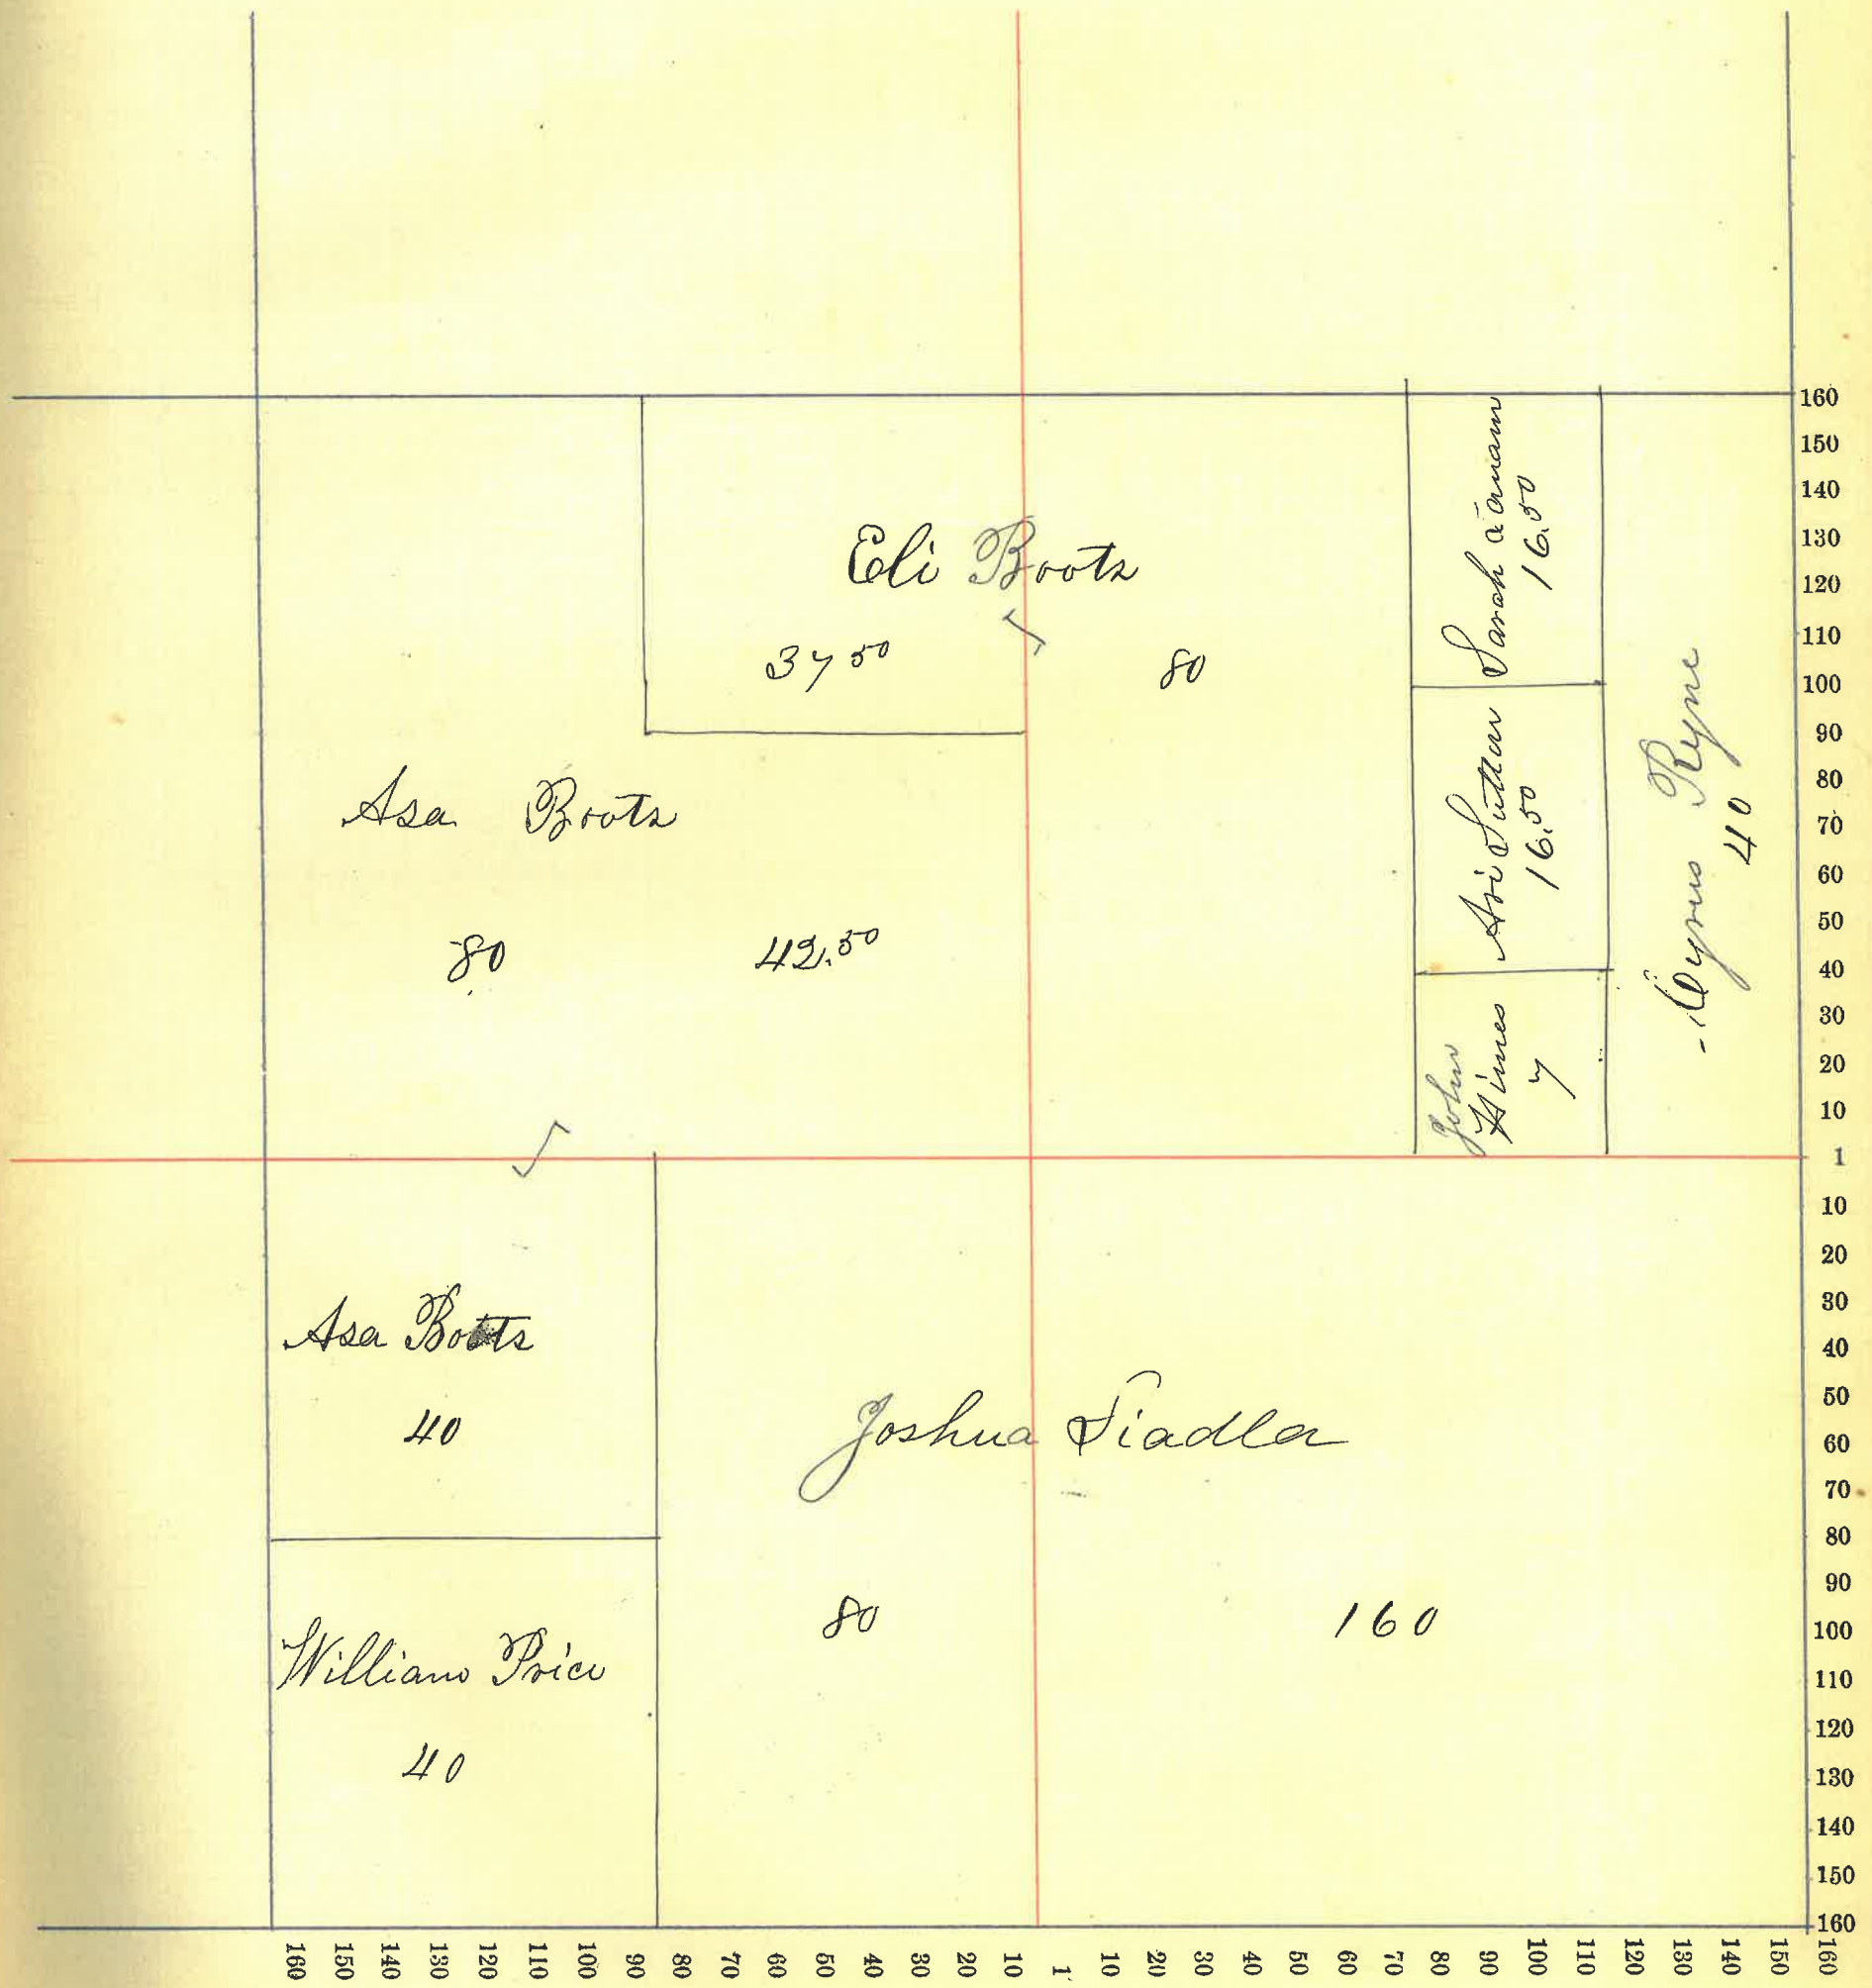 Eli Boots
37 50
80
Asa Boots
80
42.50
Sarah
16.50
Ari
16.50
John
Himes
7
Cyrus Ryne
40
Asa Botts
40
William Price
40
Joshua
80
160
160
150
140
130
120
110
100
90
80
70
60
50
40
30
20
10
1
10
20
30
40
50
60
70
80
90
100
110
120
130
140
150
160
160
150
140
130
120
110
100
90
80
70
60
50
40
30
20
10
1
10
20
30
40
50
60
70
80
90
100
110
120
130
140
150
160